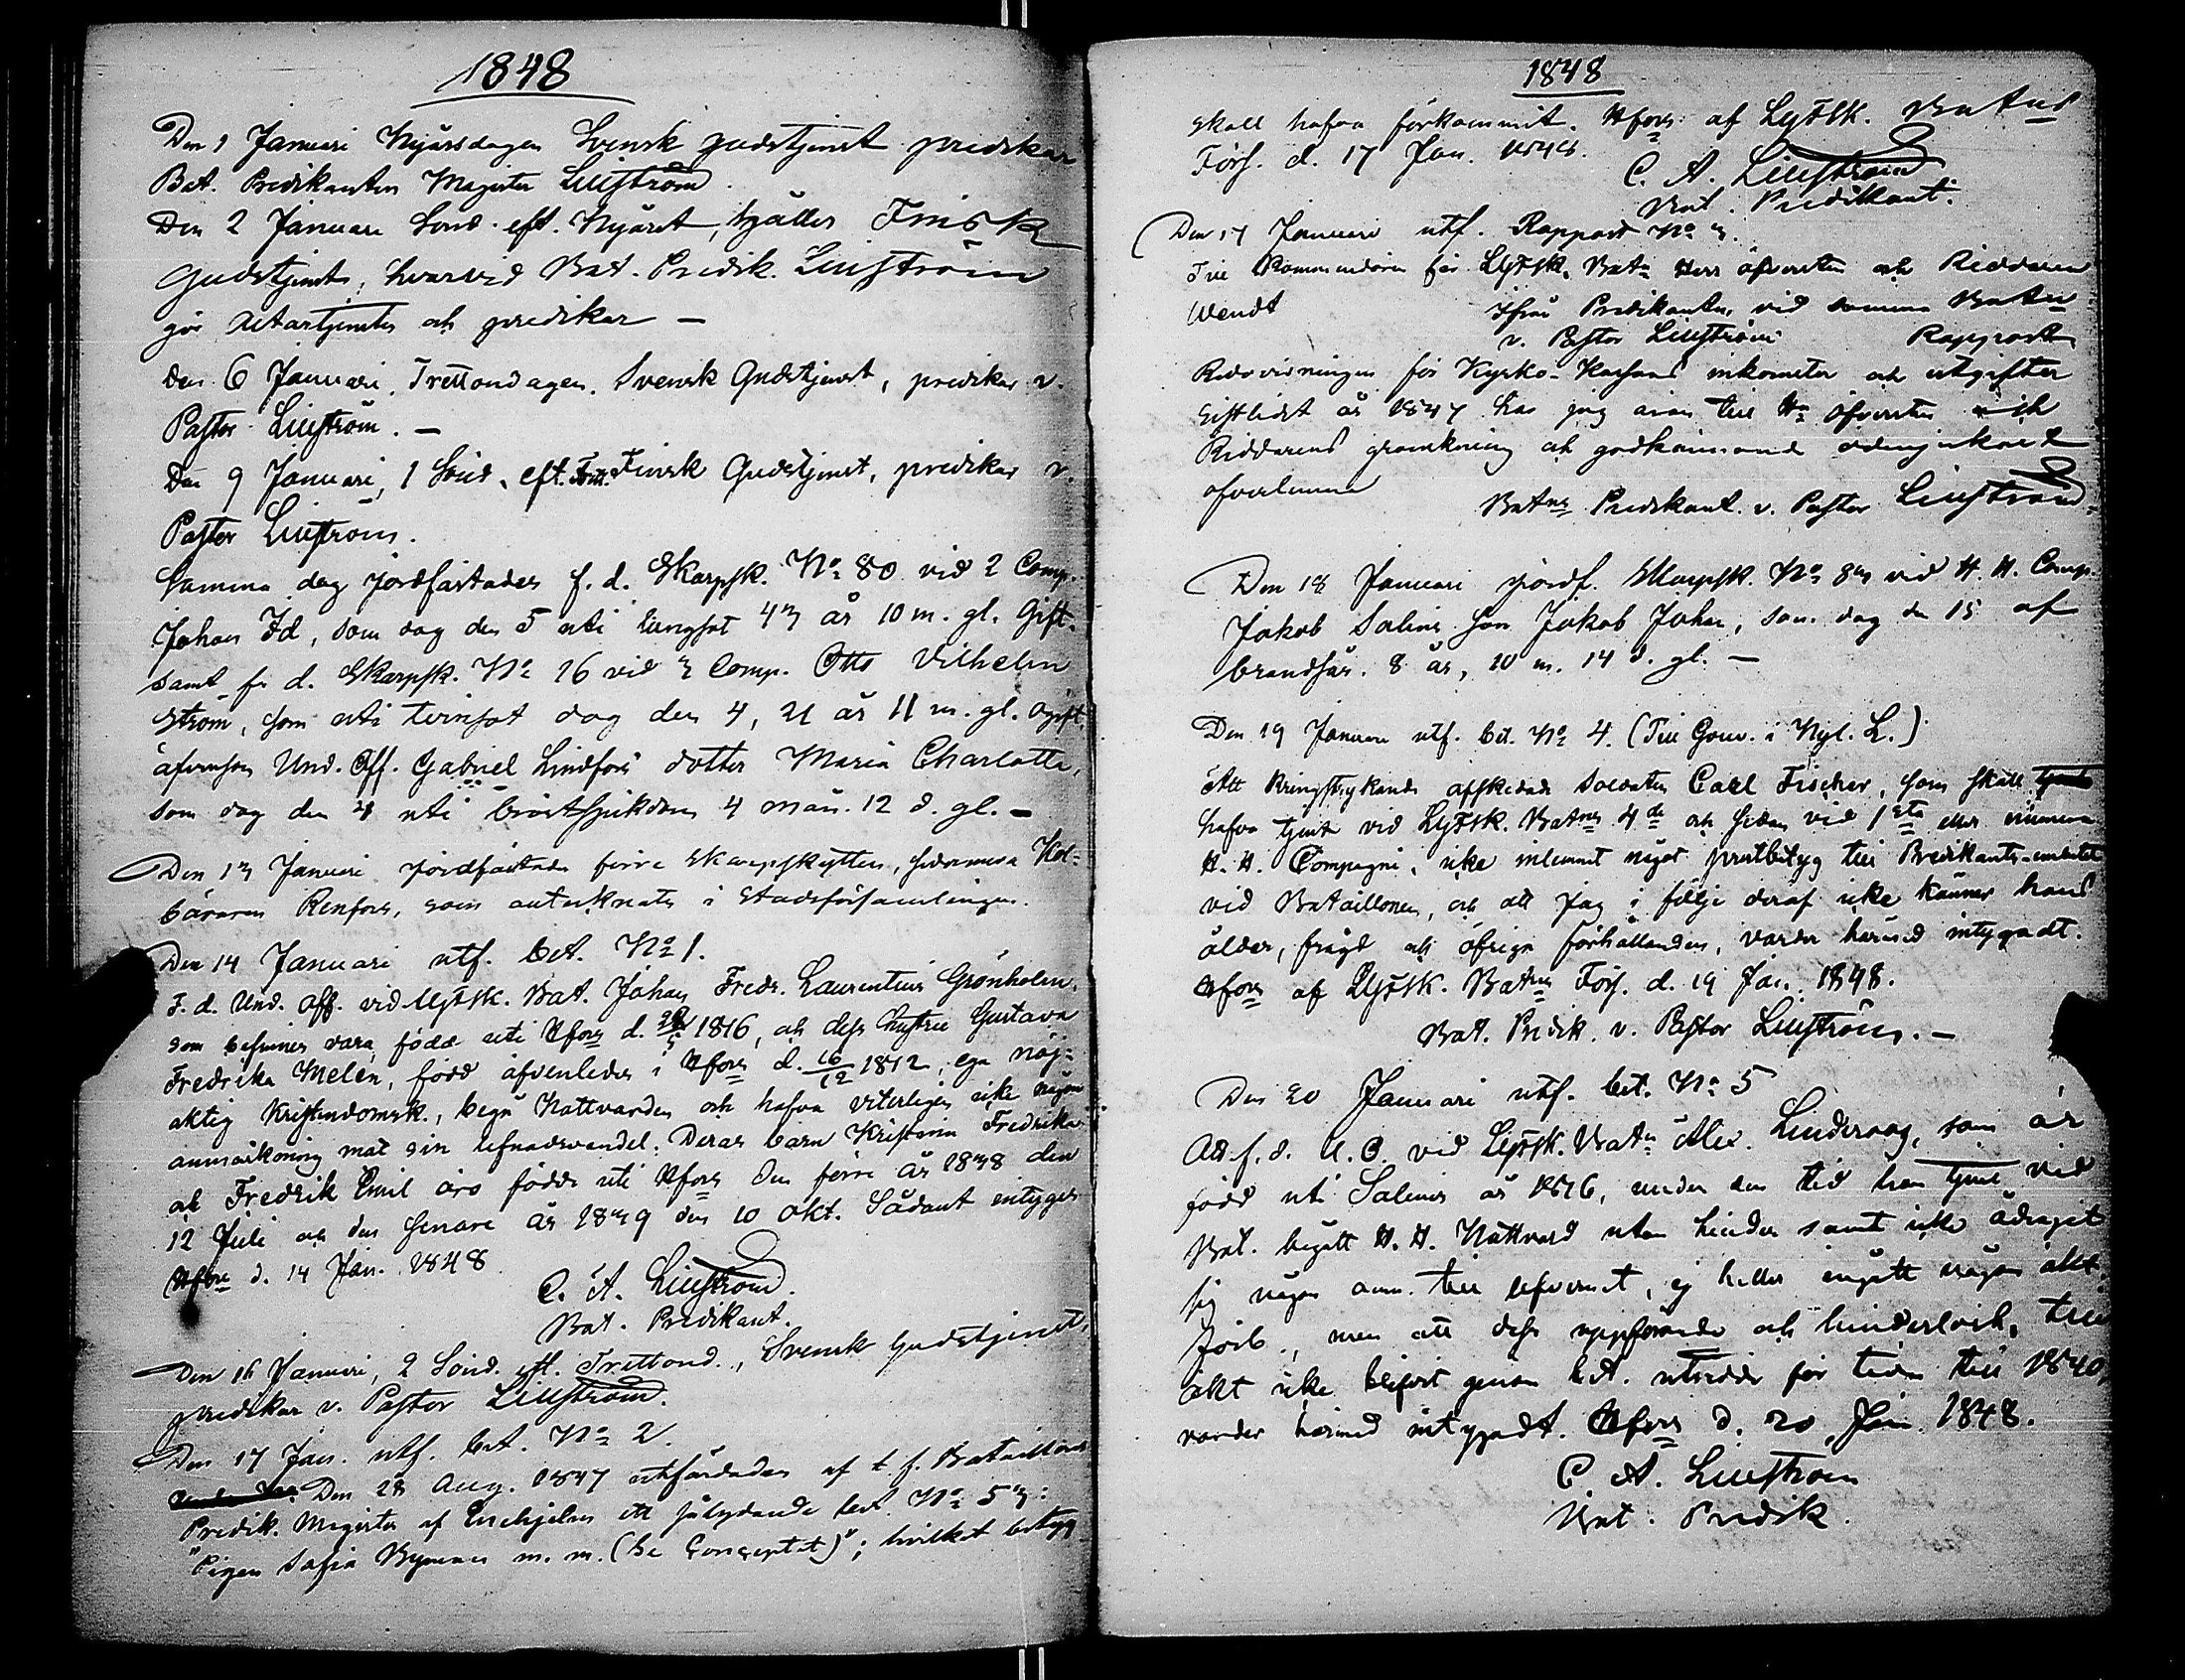 1848
Den 1 Januari Nyårsdagen Svensk gudstjenst predikar
Bat. Predikanten Magister Liljström.
Den 2 Januari Sönd. eft. Nyåret, hålles Finsk
Gudstjenst, hvarvid Bat. Predik. Liljström
gör Altartjensten och predikar —
Den 6 Januari Trettondagen Svensk Gudstjenst, predikar v.
Pastor Liljström. —
Den 9 Januari, 1 Sönd. eft. Trett. Finsk Gudstjenst, predikar v.
Pastor Liljström.
Samma dag jordfästades f. d. Skarpsk. No 80 vid 2 Comp.
Johan Id, som dog den 5 uti lungsot 43 år 10 m. gl. Gift.
samt f. d. Skarpsk. No 16 vid 3 Comp. Otto Vilhelm
Ström, som uti tvinsot dog den 4, 21 år 11 m. gl. Ogift,
äfvensom Und. Off. Gabriel Lindfors dotter Maria Charlotta,
som dog den 4 uti bröstsjukdom 4 mån. 12 d. gl. —
Den 13 Januari jordfästades förre Skarpskytten, sedermera Kol-
bäraren Renfors, som antecknats i Stadsförsamlingen.
Den 14 Januari utf. bet. No 1.
F. d. Und. Off. vid LijfSk. Bat. Johan Fredr. Laurentius Grönholm,
som befinnes vara född uti Hfors d. 1816, och dess hustru Gustava
Fredrika Melén, född äfvenledes i Hfors d. 16/12 1812, ega nöj-
aktig Kristendomsk., begå Nattvarden och hafva veterligen icke någon
anmärkning mot sin lefnadsvandel. Deras barn Kristina Fredrika
och Fredrik Emil äro födde uti Hfors den förre år 1838 den
12 Juli och den senare år 1839 den 10 Okt. Sådant intygas
Hfors d. 14 Jan. 1848
C. A. Liljström.
Bat. Predikant.
Den 16 Januari, 2 Sönd. eft. Trettond., Svensk Gudstjenst,
predikar v. Pastor Liljström.
Den 17 Jan. utf. bet. No 2.
Den 28 Aug. 1847 utfärdades af t. f. Bataillons
Predik. Magister af Enehjelm ett sålydande bet. No 53:
"Pigan Sofia Nyman m. m. (Se Conceptet)"; hvilket betyg
1848
skall hafva förkommit. Hfors af LijfSk. Batns
Förs. d. 17 Jan. 1848.
C. A. Liljström
Bat. Predikant.
Den 17 Januari utf. Rapport No 3.
Till Kommendören för LijfSk. Batn Herr öfversten och Riddaren
Wendt
Ifrån Predikanten vid samma Batn
v. Pastor Liljström
Rapport
Redovisningen för Kyrko-Kassans inkomster och utgifter
sistlidet år 1847 har jag äran till Hr öfversten och
Riddarens granskning och godkännande ödmjukast
öfverlemna
Batns Predikant v. Pastor Liljström.
Den 18 Januari jordf. Skarpsk. No 83 vid H. H. Comp.
Jakob Salins son Jakob Johan, som dog den 15 af
brandsår. 8 år, 10 m. 14 d. gl. —
Den 19 Januari utf. bet. No 4. (Till Gouv. i Nyl. L.)
Att kringstrykande afskedade Soldaten Carl Fischer, som skall
hafva tjent vid LijfSk. Batns 4de och sedan vid 1sta eller numera
H. H. Compagni, icke inlemnat något prestbetyg till Predikants-embetet
vid Bataillonen, och att jag i följe deraf icke känner hans
ålder, frägd och öfriga förhållanden, varder härmed intygadt.
Hfors af LijfSk. Batns Förs. d. 19 Jan. 1848.
Bat. Predik. v. Pastor Liljström. —
Den 20 Januari utf. bet. No 5
Att f. d. U. O. vid LijfSk. Batn Alex. Linderoos, som är
född uti Salmis år 1816, under den tid han tjent vid
Bat. begått H. H. Nattvard utan hinder samt icke ådragit
sig någon anm. till lefvernet, ej heller ingått någon äkt.
förb., men att dess uppförande och hinderlösh. till
äkt. icke blifvit genom bet. utredde för tiden till 1840,
varder härmed intygadt. Hfors d. 20 Jan. 1848.
C. A. Liljström
Bat. Predik.